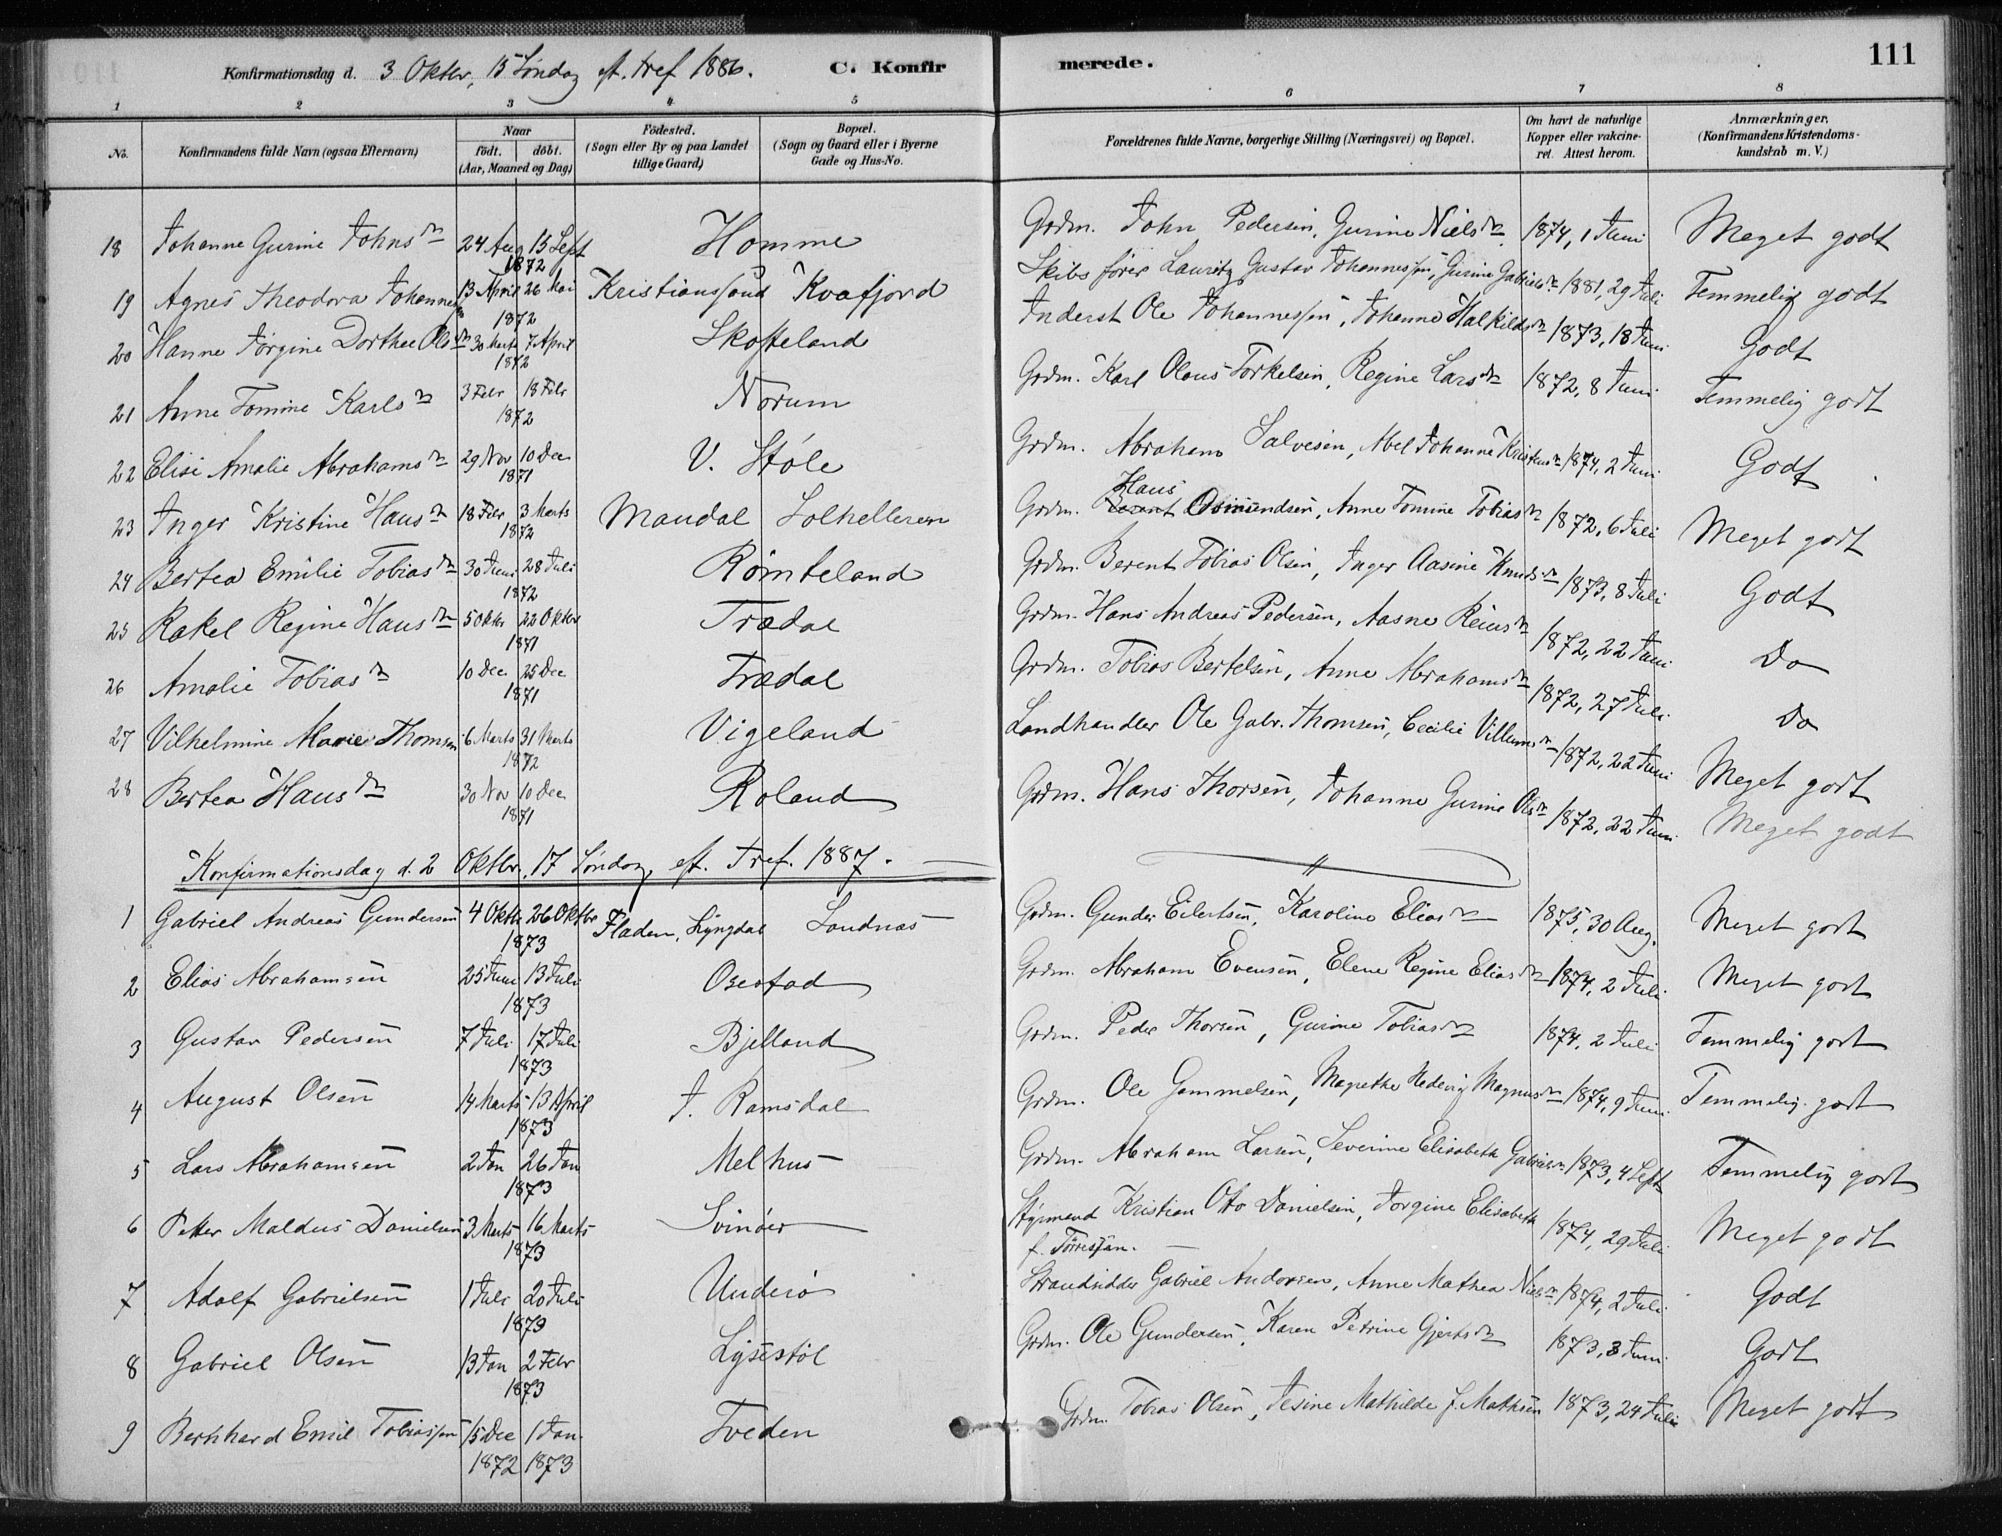 Konfirmationsdag d. 3 Oktbr, 15 Søndag eft. Tref 1886. C. Konfirmerede. 111
1 2 3 4 5 6 7 8
No. Konfirmandens fulde Navn (ogsaa Efternavn) Naar født. døbt. (Aar, Maaned og Dag) Fødested. (Sogn eller By og paa Landet tillige Gaard) Bopæl. (Sogn og Gaard eller i Byerne Gade og Hus-No. Forældrenes fulde Navne, borgerlige Stilling (Næringsvei) og Bopæl. Om havt de naturlige Kopper eller vakcineret. Attest herom. Anmærkninger. (Konfirmandens Kristendomskundskab m. V.)
18 Johanne Gurine Johnsdn 24 Aug 15 Sept 1872 Homme Grdm. John Pedersen, Gurine Nielsdn 1874, 1 Juni Meget godt
19 Agnes Theodora Johannessen 13 April 26 Mai 1872 Kristianssund Kvafjord Skibsfører Lauritz Gustav Johannessen, Gurine Gabrielsdn 1881, 29 Juli Temmelig godt
20 Hanne Jørgine Dorthee Olsdn 30 Marts 7 April 1872 Skofteland Inderst Ole Johannessen, Johanne Halkildsdn 1873, 18 Juni Godt
21 Anne Tomine Karlsdn 3 Febr 18 Febr 1872 Norum Grdm. Karl Olaus Torkelsen, Regine Larsdn 1872, 8 Juni Temmelig godt
22 Elise Amalie Abrahamsdn 29 Nov 10 Dec 1871 V. Støle Grdm. Abraham Salvesen, Abel Johanne Kristensdn 1874, 2 Juni Godt
23 Inger Kristine Hansdn 18 Febr 3 Marts 1872 Mandal Solhelleren Grdm. Hans Osmundsen, Anne Tomine Tobiasdn 1872, 6 Juli Meget godt
24 Bertea Emilie Tobiasdn 30 Juni 28 Juli 1872 Rømteland Grdm. Berent Tobias Olsen, Inger Aasine Knudsdn 1873, 8 Juli Godt
25 Rakel Regine Hansdn 5 Oktbr 22 Oktbr 1871 Trædal Grdm. Hans Andreas Pedersen, Aasne Reiersdn 1872, 22 Juni Do
26 Amalie Tobiasdn 10 Dec 25 Dec 1871 Trædal Grdm. Tobias Bertelsen, Anne Abrahamsdn 1872, 27 Juli Do
27 Vilhelmine Marie Thomsen 6 Marts 31 Marts 1872 Vigeland Landhandler Ole Gabr. Thomsen, Cecilie Villumsdn 1872, 22 Juni Meget godt
28 Bertea Hansdn 30 Nov 10 Dec 1871 Roland Grdm. Hans Thorsen, Johanne Gurine Olsdn 1872, 22 Juni Meget godt
Konfirmationsdag d. 2 Oktbr, 17 Søndag eft. Tref. 1887.
1 Gabriel Andreas Gundersen 4 Oktbr 26 Oktbr 1873 Fladen, Lyngdal Sandnæs Grdm. Gunder Eilertsen, Karoline Eliasdn 1875, 30 Aug. Meget godt
2 Elias Abrahamsen 25 Juni 13 Juli 1873 Osestad Grdm. Abraham Evensen, Elene Regine Eliasdn 1874, 2 Juli Meget godt
3 Gustav Pedersen 7 Juli 17 Juli 1873 Bjelland Grdm. Peder Thorsen, Gurine Tobiasdn 1874, 2 Juli Temmelig godt
4 August Olsen 14 Marts 13 April 1873 I. Ramsdal Grdm. Ole Gammelsen, Magrethe Hedevig Magnusdn 1874, 9 Juni Temmelig godt
5 Lars Abrahamsen 2 Jan 26 Jan 1873 Melhus Grdm. Abraham Larsen, Severine Elisabeth Gabrielsdn 1873, 4 Sept Temmelig godt
6 Petter Maldus Danielsen 3 Marts 16 Marts 1873 Svinøer Styrmand Kristian Otto Danielsen, Jørgine Elisabeth f. Tørresen. 1874, 29 Juli Meget godt
7 Adolf Gabrielsen 1 Juli 20 Juli 1873 Underø Strandsidder Gabriel Andersen, Anne Mathea Nielsdn 1874, 2 Juli Godt
8 Gabriel Olsen 13 Jan 2 Febr 1873 Lysestøl Grdm. Ole Gundersen, Karen Petrine Gjertsdn 1873, 3 Juni Godt
9 Bernhard Emil Tobiassen 15 Dec 1872 1 Jan. 1873 Tveden Grdm. Tobias Olsen, Jesine Mathilde f. Mathsen 1873, 24 Juli Meget godt